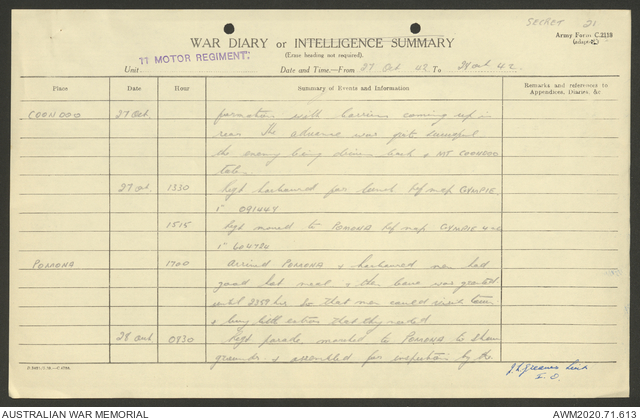 SECRET 21
Army Form C.2118
(adapted)
WAR DIARY or INTELLIGENCE SUMMARY
(Erase heading not required).
Unit 11 MOTOR REGIMENT. Date and Time—From 27 Oct 42 To 28 Oct 42
Place Date Hour Summary of Events and Information Remarks and references to Appendices, Diaries, &c
COONDOO 27 Oct. formation with carriers coming up in
rear. The advance was quite successful
the enemy being driven back & MT COONDOO
taken.
27 Oct. 1330 Regt harboured for lunch Ref map GYMPIE
1" 091447
1515 Regt moved to POMONA Ref map GYMPIE
1" 604724
POMONA 1700 Arrived POMONA & harboured men had
good hot meal & then leave was granted
until 2359 hrs so that men could visit town
& buy little extras that they needed
28 Oct. 0830 Regt parade, marched to POMONA to Show
grounds & assembled for inspection by the
Lieut
I.O.
AUSTRALIAN WAR MEMORIAL AWM2020.71.613